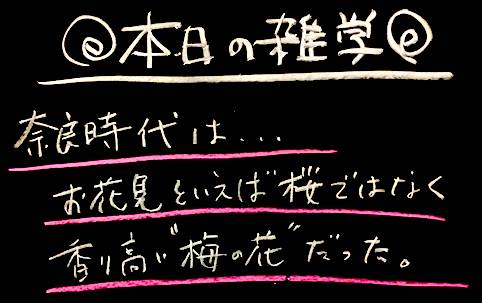 @本日の雑学@
奈良時代は...
お花見といえば桜ではなく
香り高い"梅の花"だった。